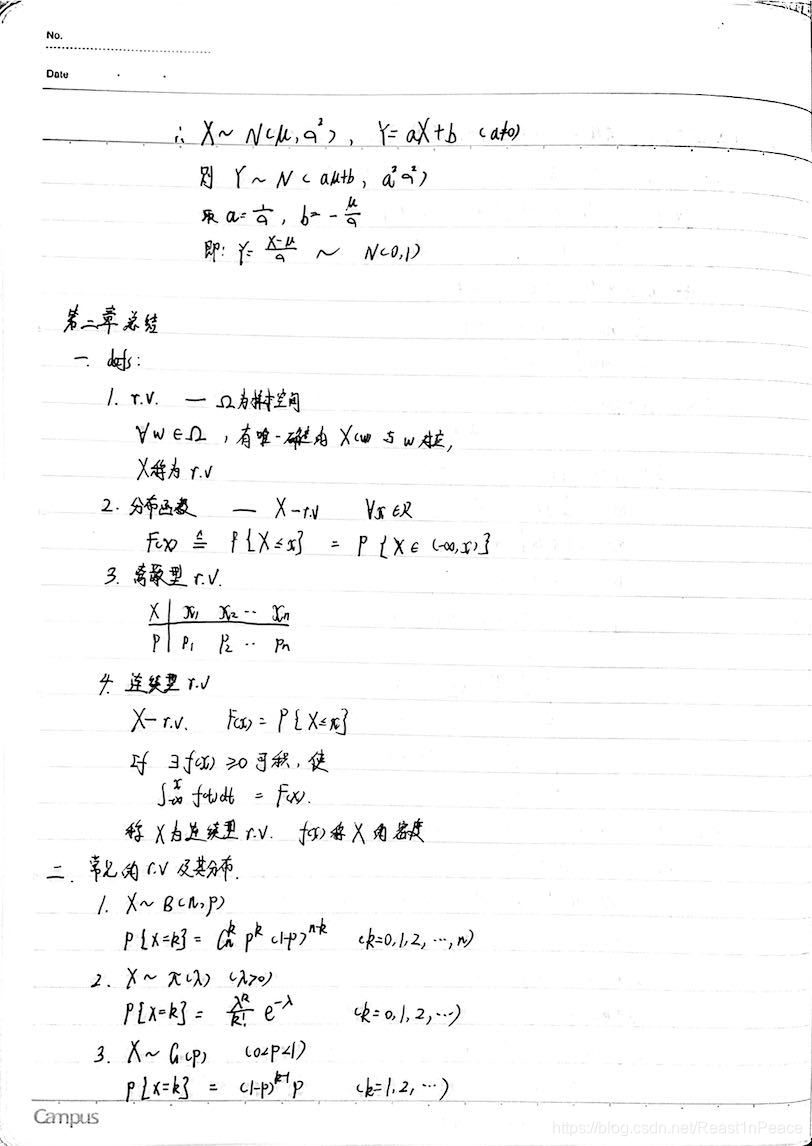 No.
Date
∴ X ~ N(μ, σ²), Y = aX+b (a≠0)
则 Y ~ N(aμ+b, a²σ²)
取 a = 1/σ, b = -μ/σ
即: Y = (X-μ)/σ ~ N(0,1)
第二章总结
一. defs:
1. r.v. — Ω为样本空间
∀w∈Ω, 有唯一确定的 X(w) 与 w 对应,
X称为 r.v
2. 分布函数 — X-r.v ∀x∈R
F(x) ≜ P{X≤x} = P{X∈(-∞,x)}
3. 离散型 r.v.
X | x₁ x₂ ·· xₙ
P | P₁ P₂ ·· Pₙ
4. 连续型 r.v
X-r.v. F(x) = P{X≤x}
If ∃f(x)≥0可积, 使
∫₋∞ˣ f(t)dt = F(x).
称X为连续型 r.v. f(x)称X的密度
二. 常见的 r.v 及其分布.
1. X~B(n,p)
P{X=k} = Cₙᵏ pᵏ (1-p)ⁿ⁻ᵏ (k=0,1,2,…,n)
2. X~π(λ) (λ>0)
P{X=k} = λᵏ/k! e^(-λ) (k=0,1,2,…)
3. X~G(p) (0<p<1)
P{X=k} = (1-p)ᵏ⁻¹p (k=1,2,…)
Campus
https://blog.csdn.net/Reast1nPeace